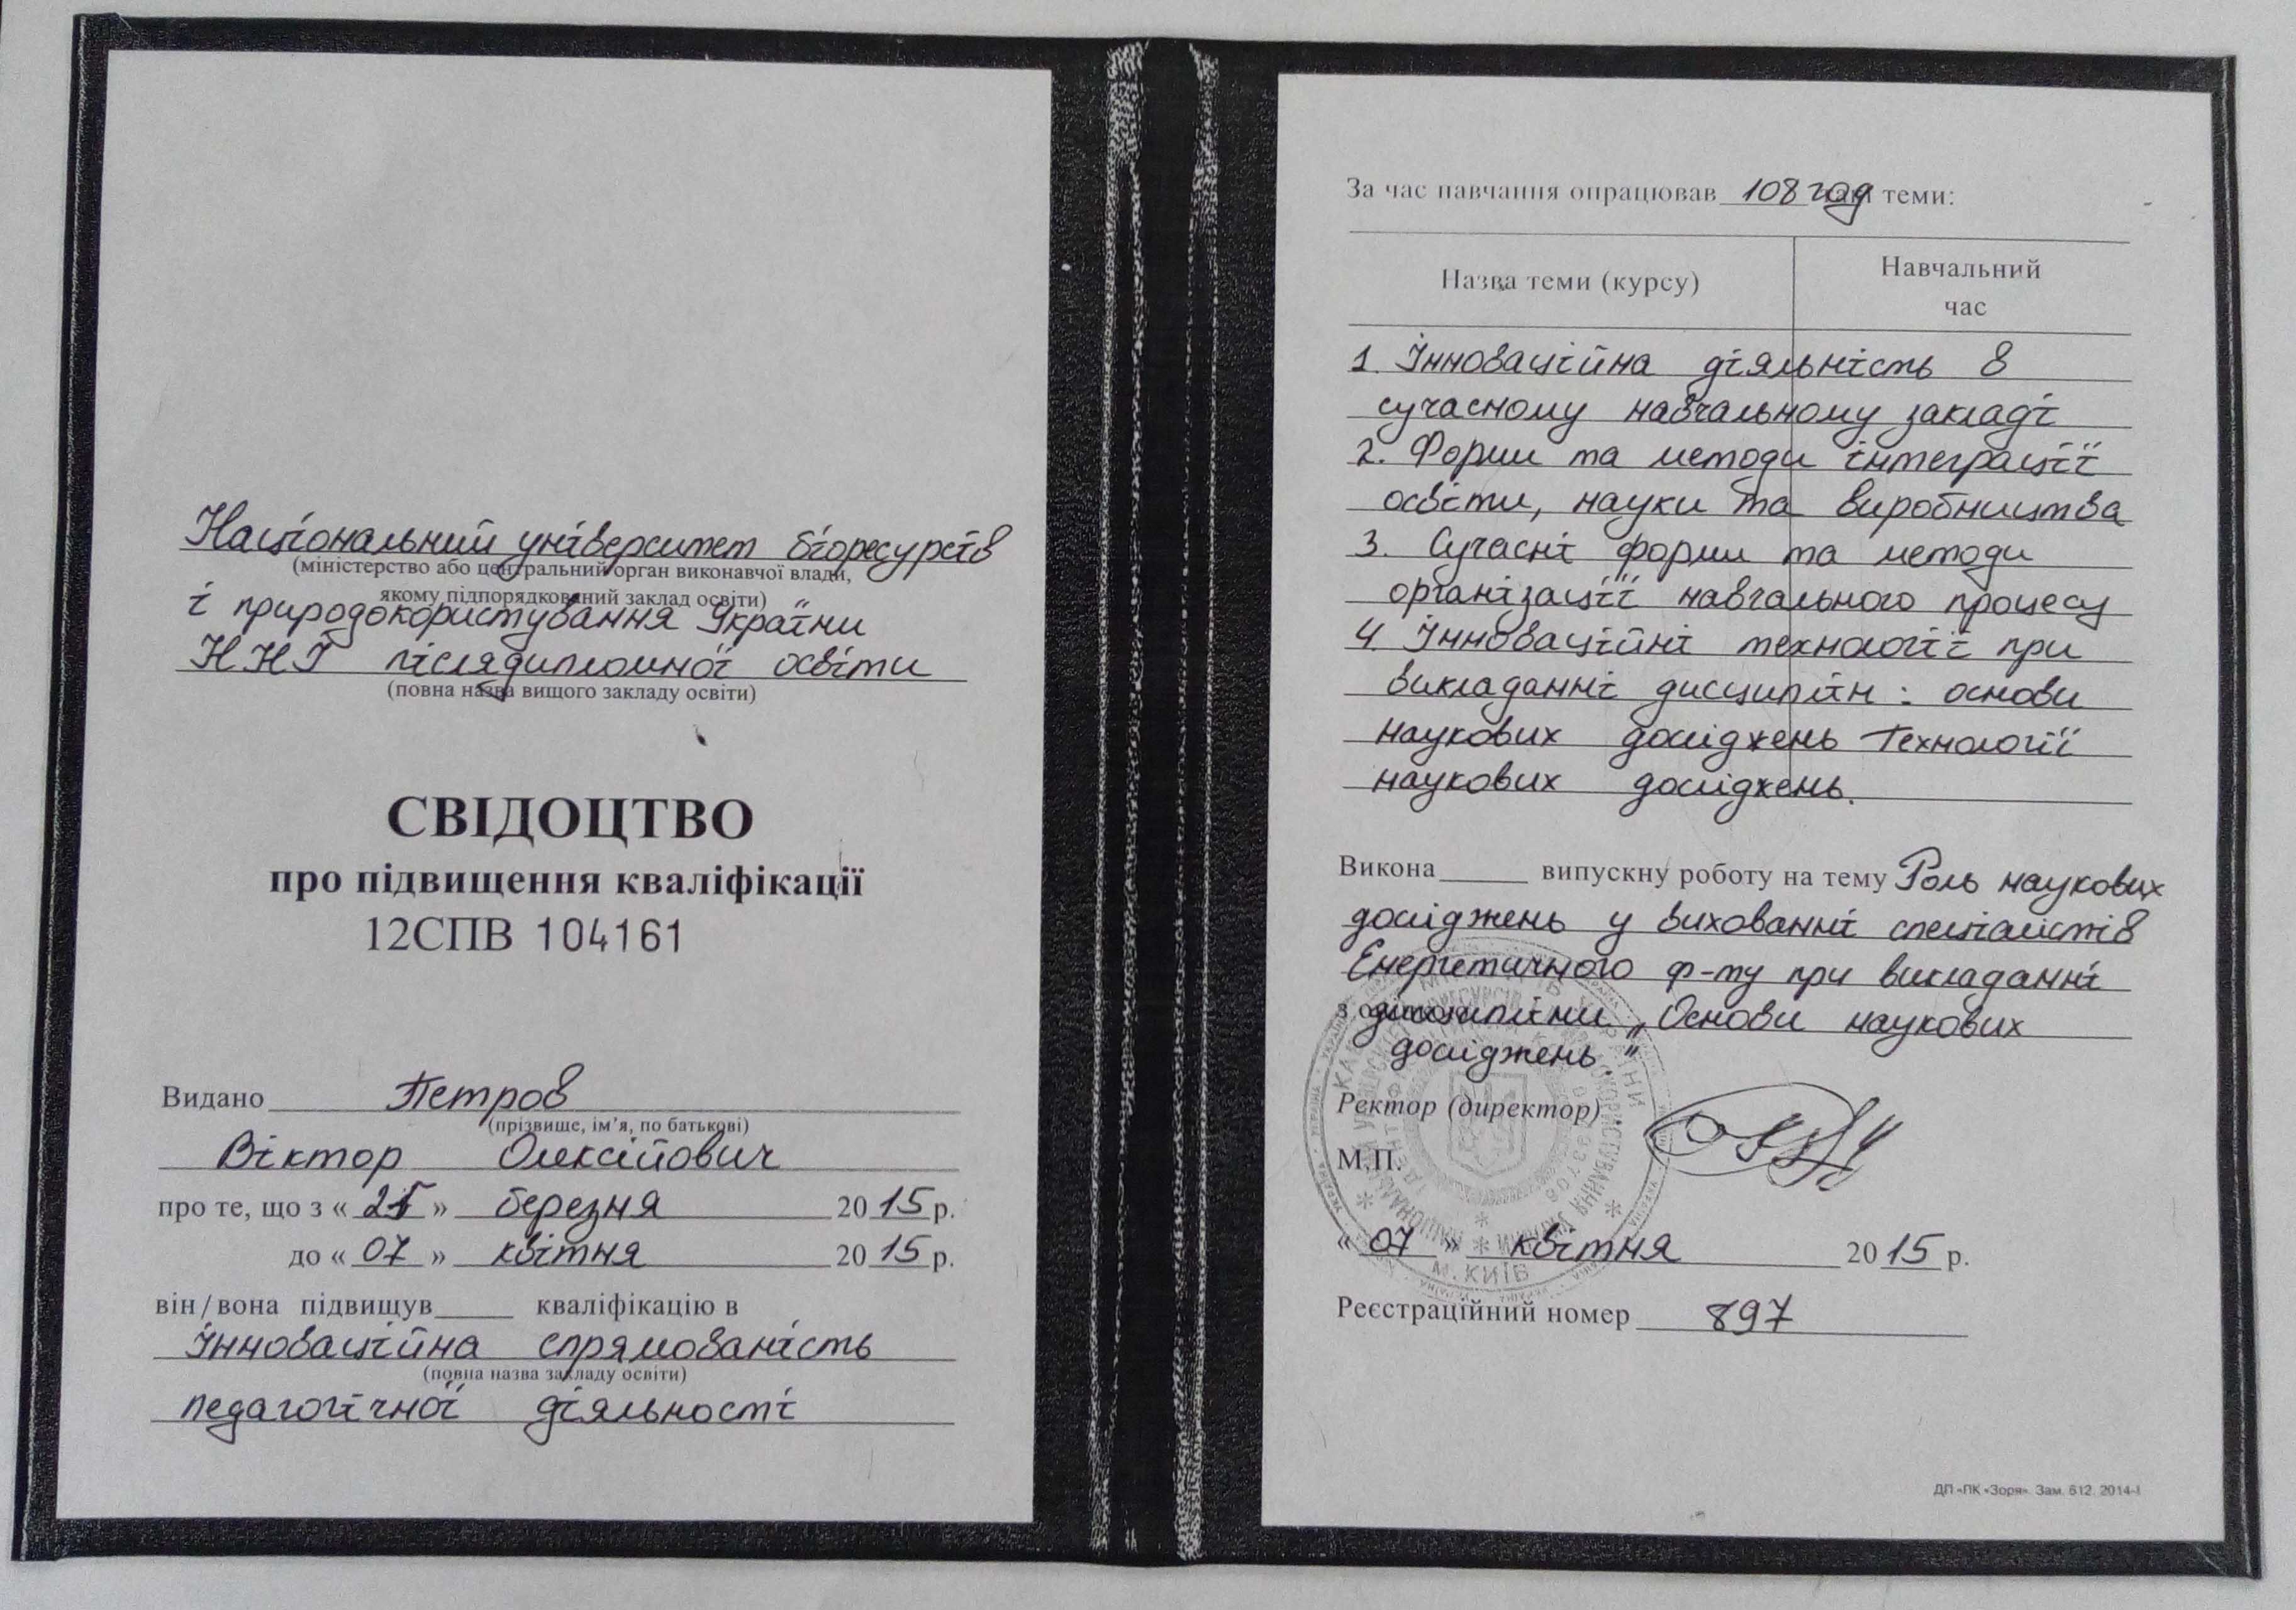 Національний університет біоресурсів
(міністерство або центральний орган виконавчої влади,
якому підпорядкований заклад освіти)
і природокористування України
ННІ післядипломної освіти
(повна назва вищого закладу освіти)
СВІДОЦТВО
про підвищення кваліфікації
12СПВ 104161
Видано Петров
(прізвище, ім’я, по батькові)
Віктор Олексійович
про те, що з « » березня 2015 р.
до « 07 » квітня 2015 р.
він/вона підвищув____ кваліфікацію в
інноваційна спрямованість
(повна назва закладу освіти)
педагогічної діяльності
За час навчання опрацював 108 год такі теми:
Назва теми (курсу)
Навчальний
час
1. Інноваційна діяльність в
сучасному навчальному закладі
2. Форми та методи інтеграції
освіти, науки та виробництва
3. Сучасні форми та методи
організації навчального процесу
4. Інноваційні технології при
викладанні дисциплін: основи
наукових досліджень Технології
наукових досліджень.
Викона____ випускну роботу на тему Роль наукових
досліджень у вихованні спеціалістів
Енергетичного ф-ту при викладанні
дисципліни „Основи наукових
досліджень."
Ректор (директор)
М.П.
« 07 » квітня 2015 р.
М.КИЇВ
Реєстраційний номер 897
ДП «ПК «Зоря». Зам. 612. 2014-І